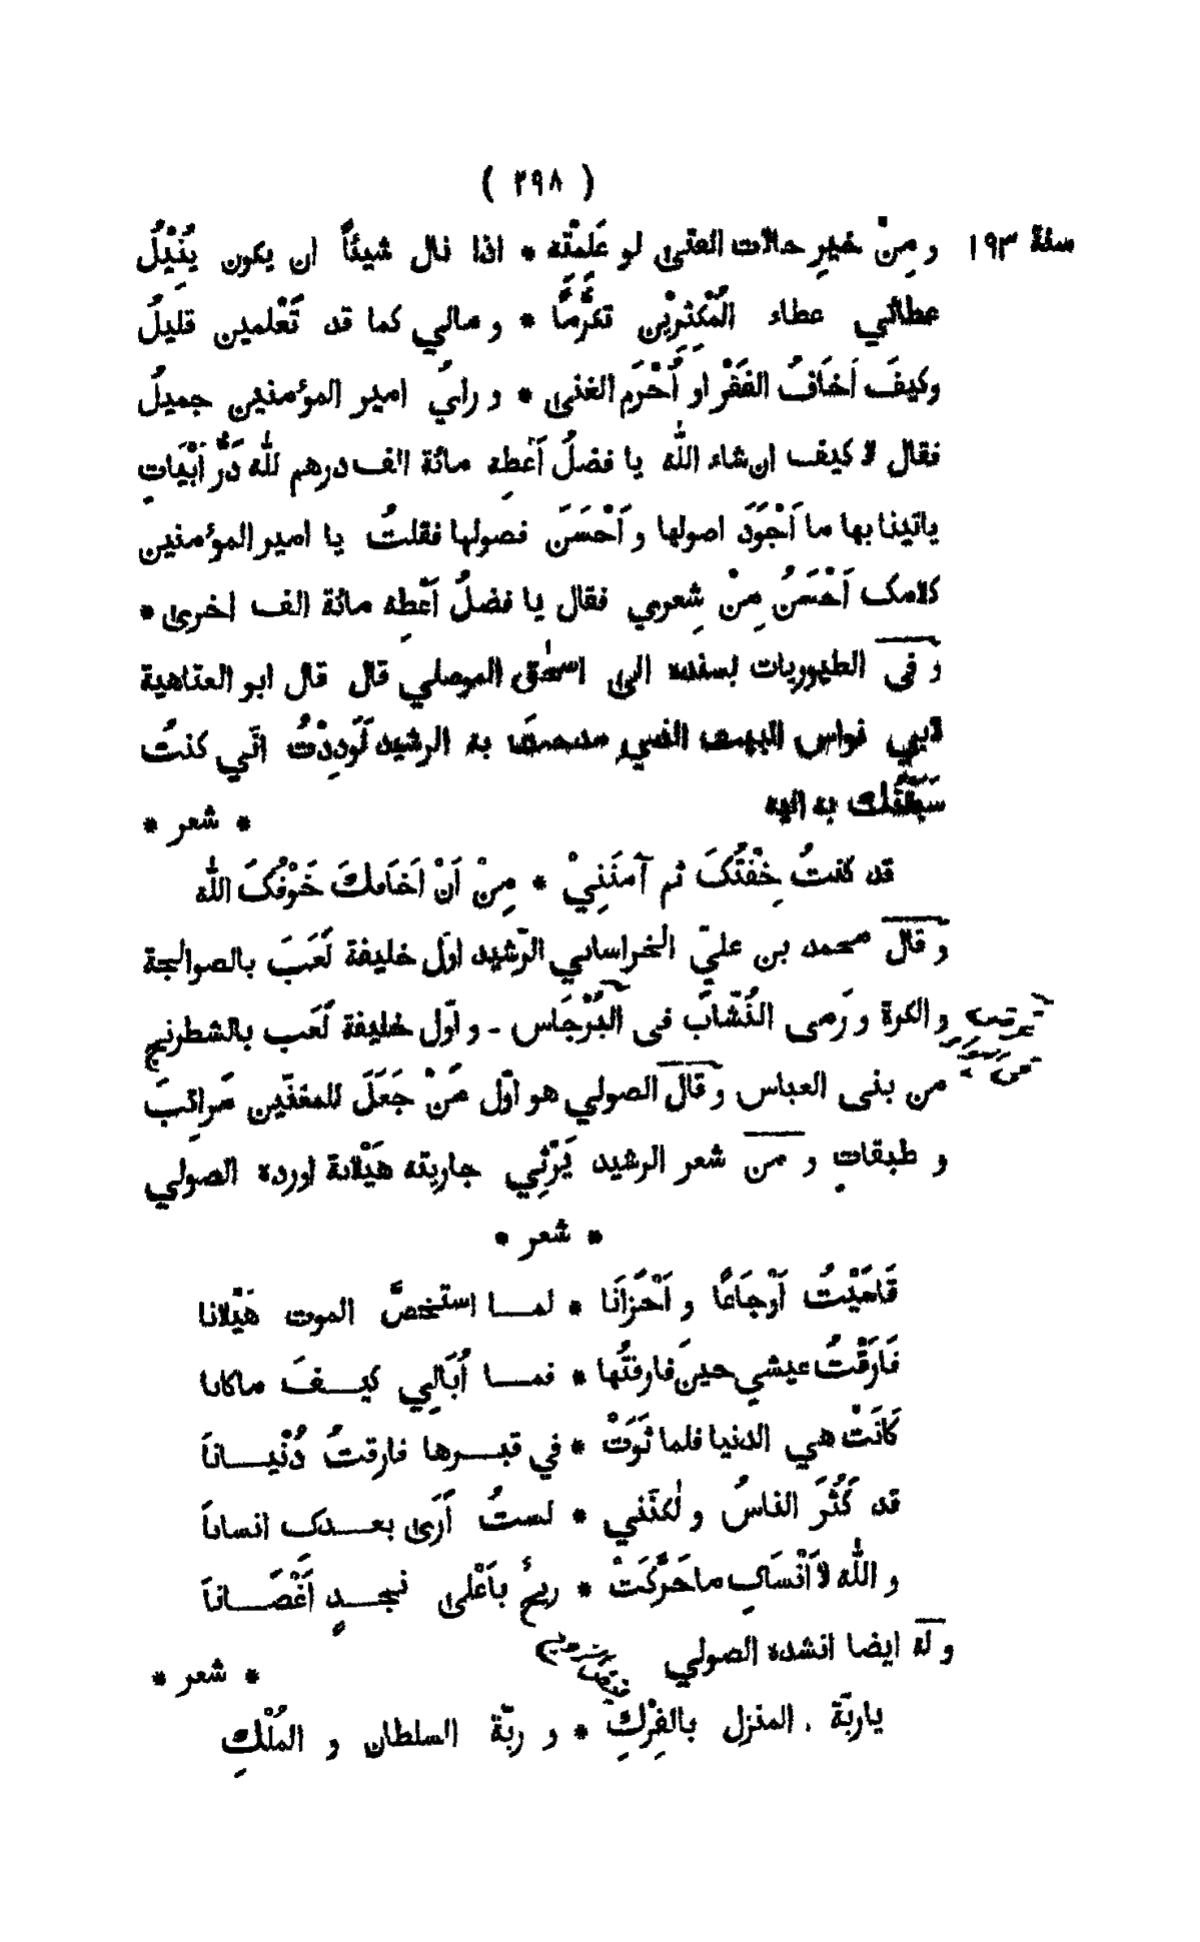 ( ٢٩٨ )
سنة ١٩٣
و مِنْ خيرِ حالات الفتى لو عَلِمْتِهِ * اذا نال شيئاً ان يكون يُنِيْلُ
عطائي عطاء المُكْثِرِيْن تكرُّمًا * و مالي كما قد تَعْلمين قليلُ
وكيفَ اَخَافُ الفَقْر او اُحْرَم الغنى * و رايُ امير المؤمنين جميلُ
فقال لا كيف ان شاء الله يا فضلُ اَعْطِه مائة الف درهم لله دَرُّ اَبْيَاتٍ
ياتينا بها ما اَجْوَدَ اصولها و اَحْسَنَ فصولها فقلتُ يا امير المؤمنين
كلامك اَحْسَنُ مِنْ شِعري فقال يا فضلُ اَعْطِه مائة الف اخرى *
و فى الطيوريات بسنده الى اسحٰق الموصلي قال قال ابو العتاهية
لابي نواس البيت الذي مدحتَ به الرشيد لَوَدِدْتُ انّي كنتُ
سَبَقْتُك به اليه
* شعر *
قد كنتُ خِفْتُكَ ثم آمَنَنِيْ * مِنْ اَنْ اَخَافَكَ خَوْفُكَ الله
و قال محمد بن عليّ الخراساني الرّشيد اوّل خليفة لَعِبَ بالصوالجة
و الكرة و رَمى النُشّابَ فى البُرْجَاس - و اوّل خليفة لَعب بالشطرنج
من بنى العباس و قالَ الصولي هو اوّل مَنْ جَعَلَ للمغنّين مَراتِبَ
و طبقاتٍ و من شعر الرشيد يَرْثِي جاريته هَيْلانة اورده الصولي
* شعر *
قَاسَيْتُ اَوْجَاعًا و اَحْزَانَا * لمــا استخصَّ الموت هَيْلانا
فَارَقْتُ عيشي حينَ فارقتُها * فمــا اُبَالِي كيــفَ ماكانا
كَانَتْ هي الدنيا فلما ثَوَتْ * في قبــرها فارقتُ دُنْيــاناَ
قد كَثُرَ الناسُ و لٰكنّني * لستُ اَرَى بعــدك انساناَ
و الله لا اَنْساكِ ما حَرَّكَتْ * ريحٌ باَعْلى نجــدٍ اَغْصَــاناَ
و له ايضا انشده الصولي
* شعر *
ياربّة المنزل بالفِرْكِ * و ربّة السلطان و المُلْكِ